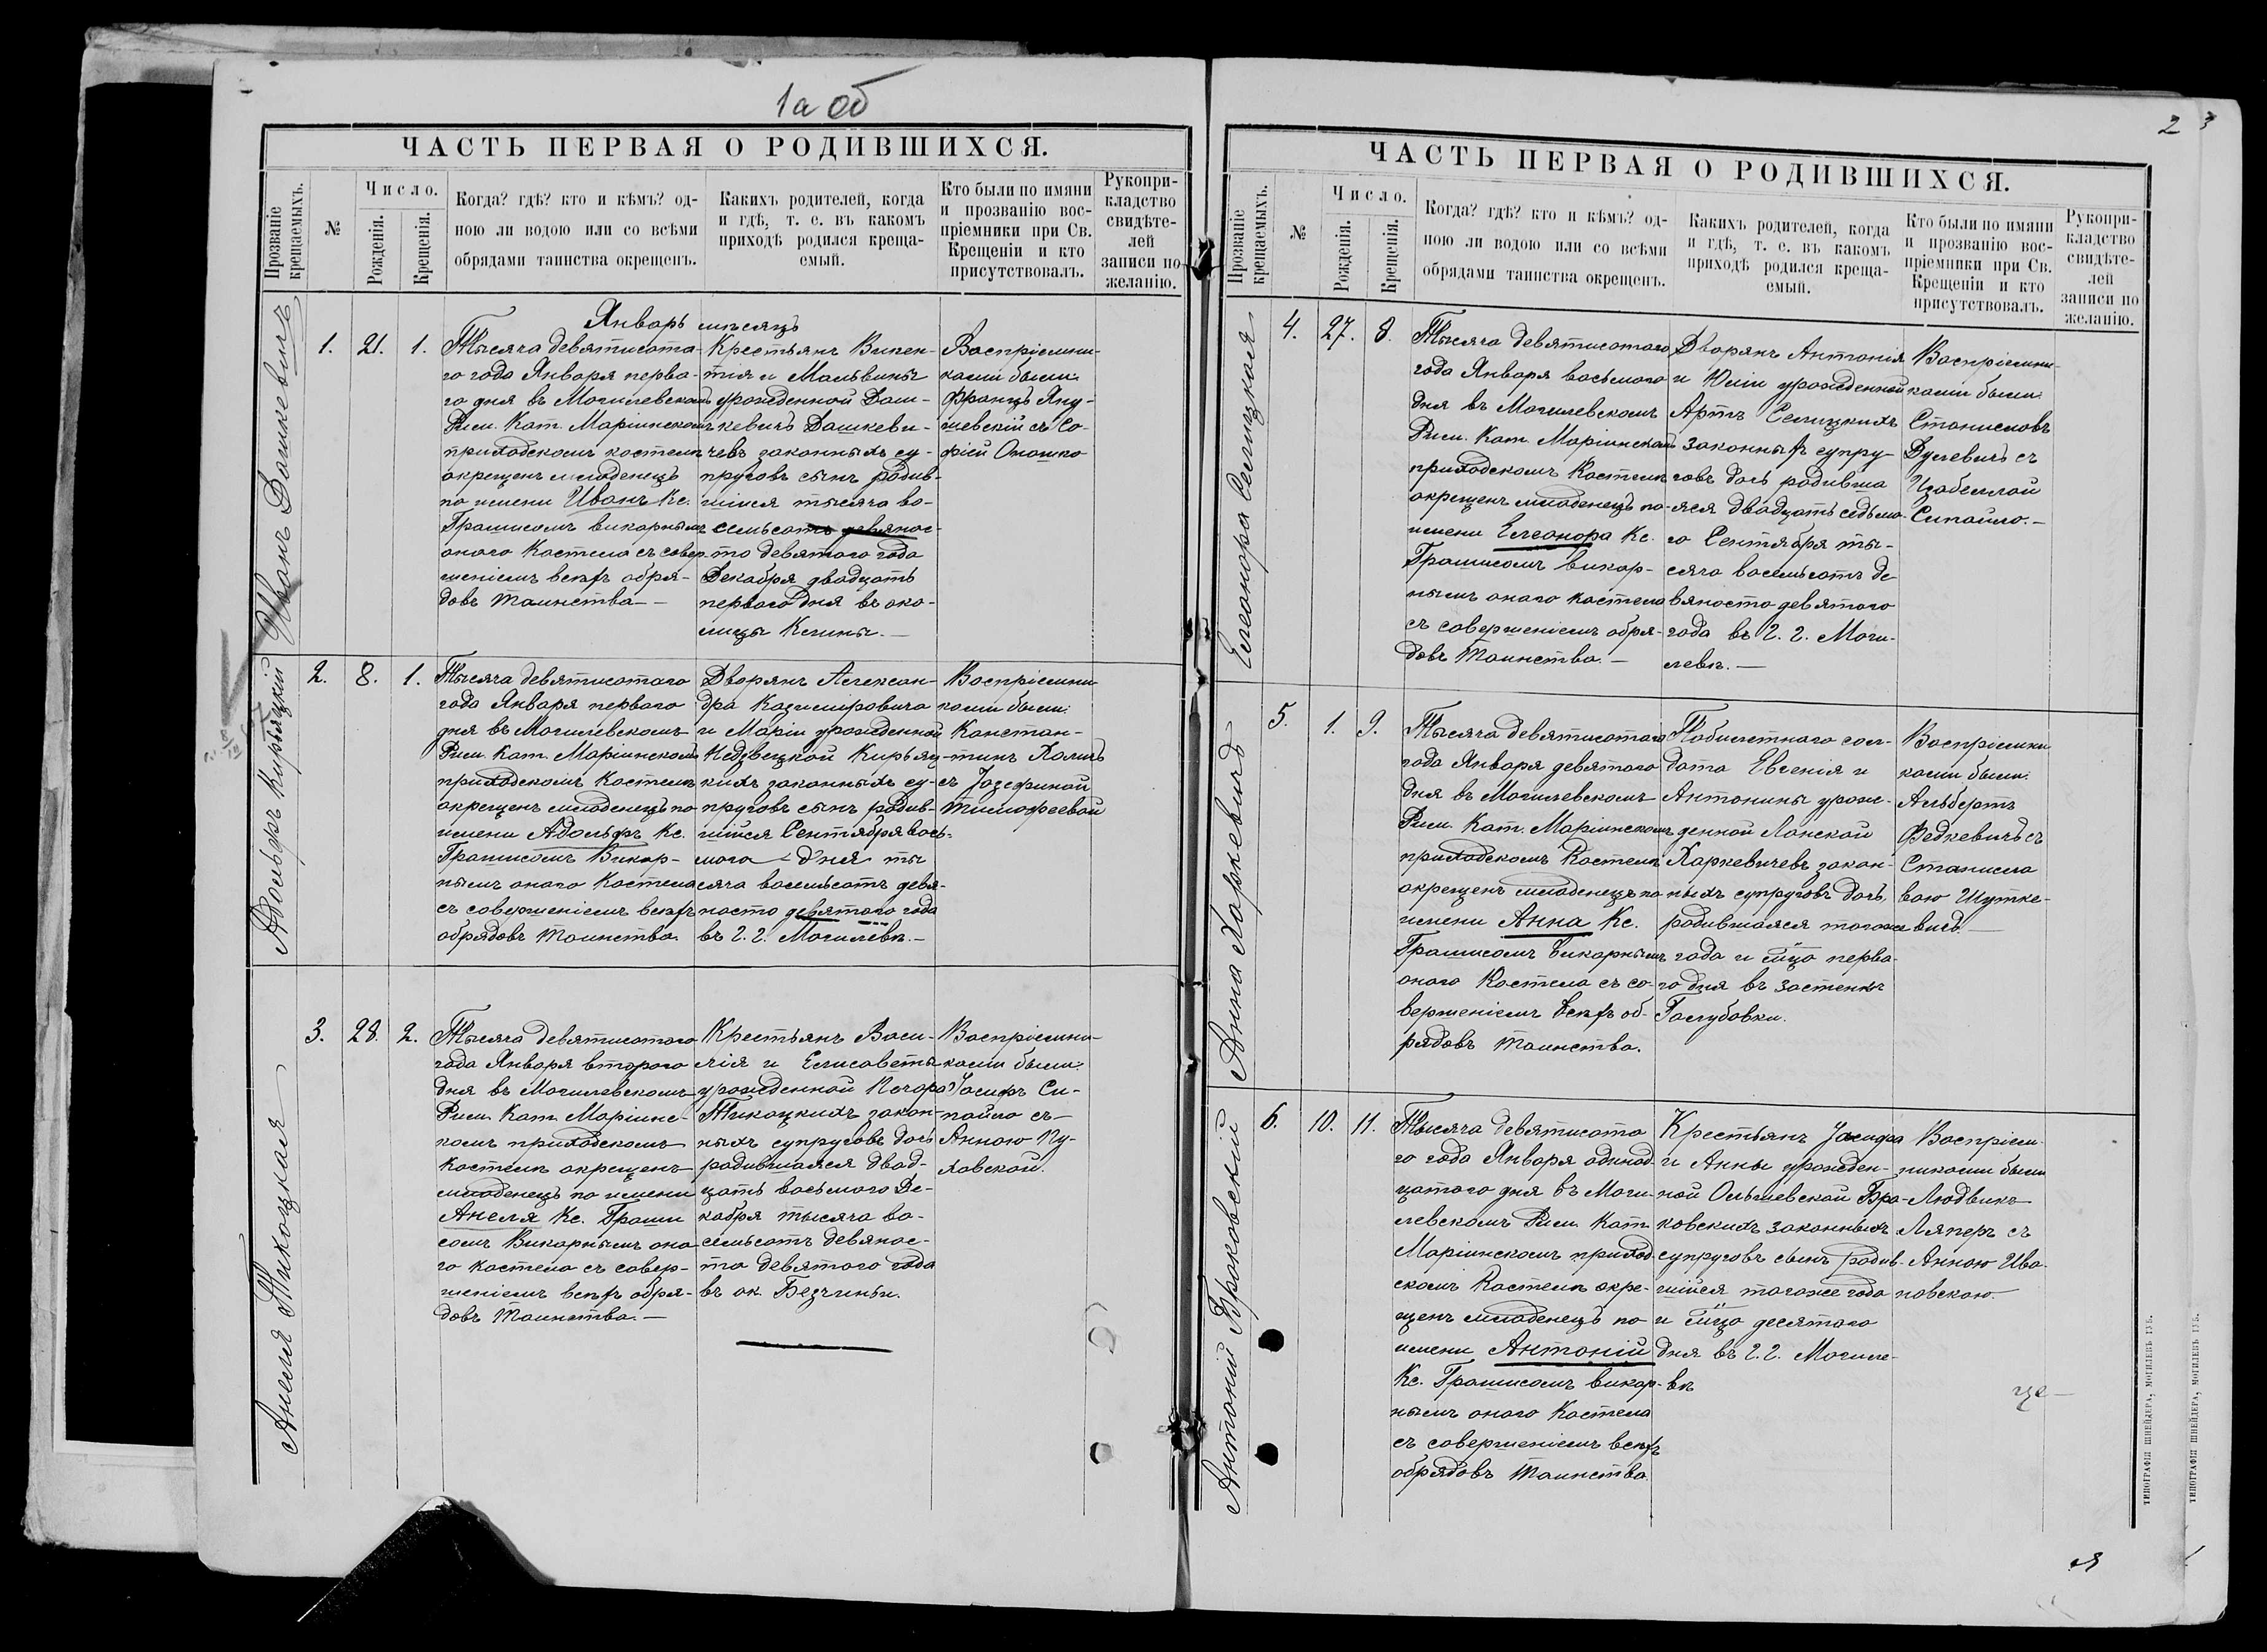 1а об
ЧАСТЬ ПЕРВАЯ О РОДИВШИХСЯ.
Прозваніе крещаемыхъ.
№
Число.
Рожденія.
Крещенія.
Когда? гдѣ? кто и кѣмъ? од-
ною ли водою или со всѣми
обрядами таинства окрещенъ.
Какихъ родителей, когда
и гдѣ, т. е. въ какомъ
приходѣ родился креща-
емый.
Кто были по имяни
и прозванію вос-
пріемники при Св.
Крещеніи и кто
присутствовалъ.
Рукопри-
кладство
свидѣте-
лей
записи по
желанію.
Январь мѣсяцъ
Иванъ Дашкевичъ
1.
21.
1.
Тысяча девятисота-
го года Января перва-
го дня въ Могилевскомъ
Рим. Кат. Маріинскомъ
приходскомъ костелѣ
окрещенъ младенецъ
по имени Иванъ Кс.
Грашисомъ викарнымъ
онаго Костела съ совер-
шеніемъ всѣхъ обря-
довъ Таинства—
Крестьянъ Викен-
тія и Мальвины
урожденной Даш-
кевичъ Дашкеви-
чевъ законныхъ су-
пруговъ сынъ родив-
шійся тысяча во-
семьсотъ девянос-
то девятого года
Декабря двадцать
первого дня въ око-
лицы Клины.—
Воспріемни-
ками были:
Францъ Яну-
шевскій съ Со-
фіей Оношко
Адольфъ Кирьяцкій
2.
8.
1.
Тысяча девятисотаго
года Января первого
дня въ Могилевскомъ
Рим. Кат. Маріинскомъ
приходскомъ Костелѣ
окрещенъ младенецъ по
имени Адольфъ Кс.
Грашисомъ Викар-
нымъ онаго Костела
съ совершеніемъ всѣхъ
обрядовъ Таинства.
Дворянъ Алексан-
дра Казиміровича
и Маріи урожденной
Недзвецкой Кирьяц-
кихъ законныхъ су-
пруговъ сынъ родив-
шійся Сентября вось-
мого дня ты
сяча восемьсотъ девя-
носто девятого года
въ г. г. Могилевѣ.—
Воспріемни-
ками были:
Констан-
тинъ Холичъ
съ Іозефиной
Тимофеевой
Анеля Тикоцкая
3.
28.
2.
Тысяча девятисотого
года Января второго
дня въ Могилевскомъ
Рим. Кат. Маріинс-
комъ приходскомъ
Костелѣ окрещенъ
младенецъ по имени
Анеля Кс. Граши
сомъ Викарнымъ она
го костела съ совер-
шеніемъ всѣхъ обря-
довъ Таинства.—
Крестьянъ Васи-
лія и Елисаветы
урожденной Почоро
Тикоцкихъ закон-
ныхъ супруговъ дочь
родившаяся двад-
цать восьмого Де-
кабря тысяча во-
семьсотъ девянос-
то девятого года
въ ок. Безчины.
Воспріемни-
ками были:
Іосифъ Си-
пайло съ
Анною Пу-
ховской.
2 3
ЧАСТЬ ПЕРВАЯ О РОДИВШИХСЯ.
Прозваніе крещаемыхъ.
№
Число.
Рожденія.
Крещенія.
Когда? гдѣ? кто и кѣмъ? од-
ною ли водою или со всѣми
обрядами таинства окрещенъ.
Какихъ родителей, когда
и гдѣ, т. е. въ какомъ
приходѣ родился креща-
емый.
Кто были по имяни
и прозванію вос-
пріемники при Св.
Крещеніи и кто
присутствовалъ.
Рукопри-
кладство
свидѣте-
лей
записи по
желанію.
Елеонора Селицкая
4.
27.
8.
Тысяча девятисотаго
года Января восьмого
дня въ Могилевскомъ
Рим. Кат. Маріинском
приходскомъ Костелѣ
окрещенъ младенецъ по-
имени Елеонора Кс.
Грашисомъ викар-
нымъ онаго костела
съ совершеніемъ обря-
довъ Таинства.—
Дворянъ Антонія
и Юліи урожденной
Артъ Селицкихъ
законныхъ супру-
говъ дочь родивша
яся двадцать седьмо-
го Сентября ты-
сяча восемьсотъ де
вяносто девятого
года въ г. г. Моги-
левѣ.—
Воспріемни-
ками были:
Станиславъ
Дулевичъ съ
Изабеллой
Сипайло.—
Анна Харкевичъ
5.
1.
9.
Тысяча девятисотаго
года Января девятого
дня въ Могилевскомъ
Рим. Кат. Маріинскомъ
приходскомъ Костелѣ
окрещенъ младенецъ по
имени Анна Кс.
Грашисомъ викарнымъ
онаго Костела съ со-
вершеніемъ всѣхъ об-
рядовъ Таинства.
Побилетнаго сол-
дата Евгенія и
Антонины урож-
денной Лонской
Харкевичевъ закон-
ныхъ супруговъ дочь
родившаяся тогоже
года и м-ца перво-
го дня въ застенкѣ
Голубовки.
Воспріемни
ками были:
Альбертъ
Федкевичъ съ
Станисла
вою Шутке-
вичъ.—
Антоній Браковскій
6.
10.
11.
Тысяча девятисота
го года Января одинад-
цатого дня въ Моги-
левскомъ Рим. Кат.
Маріинскомъ приход-
скомъ Костелѣ окре-
щенъ младенецъ по
имени Антоній
Кс. Грашисомъ викар-
нымъ онаго Костела
съ совершеніемъ всѣхъ
обрядовъ Таинства.
Крестьянъ Іосифа
и Анны урожден-
ной Ольшевской Бра-
ковскихъ законныхъ
супруговъ сынъ родив-
шійся тогоже года
и м-ца десятого
дня въ г. г. Могиле-
вѣ
Воспріем-
никами были
Людвикъ
Ляперъ съ
Анною Ива-
новскою.
ТИПОГРАФІЯ ШНЕЙДЕРА, МОГИЛЕВЪ ГУБ.
ТИПОГРАФІЯ ШНЕЙДЕРА, МОГИЛЕВЪ ГУБ.